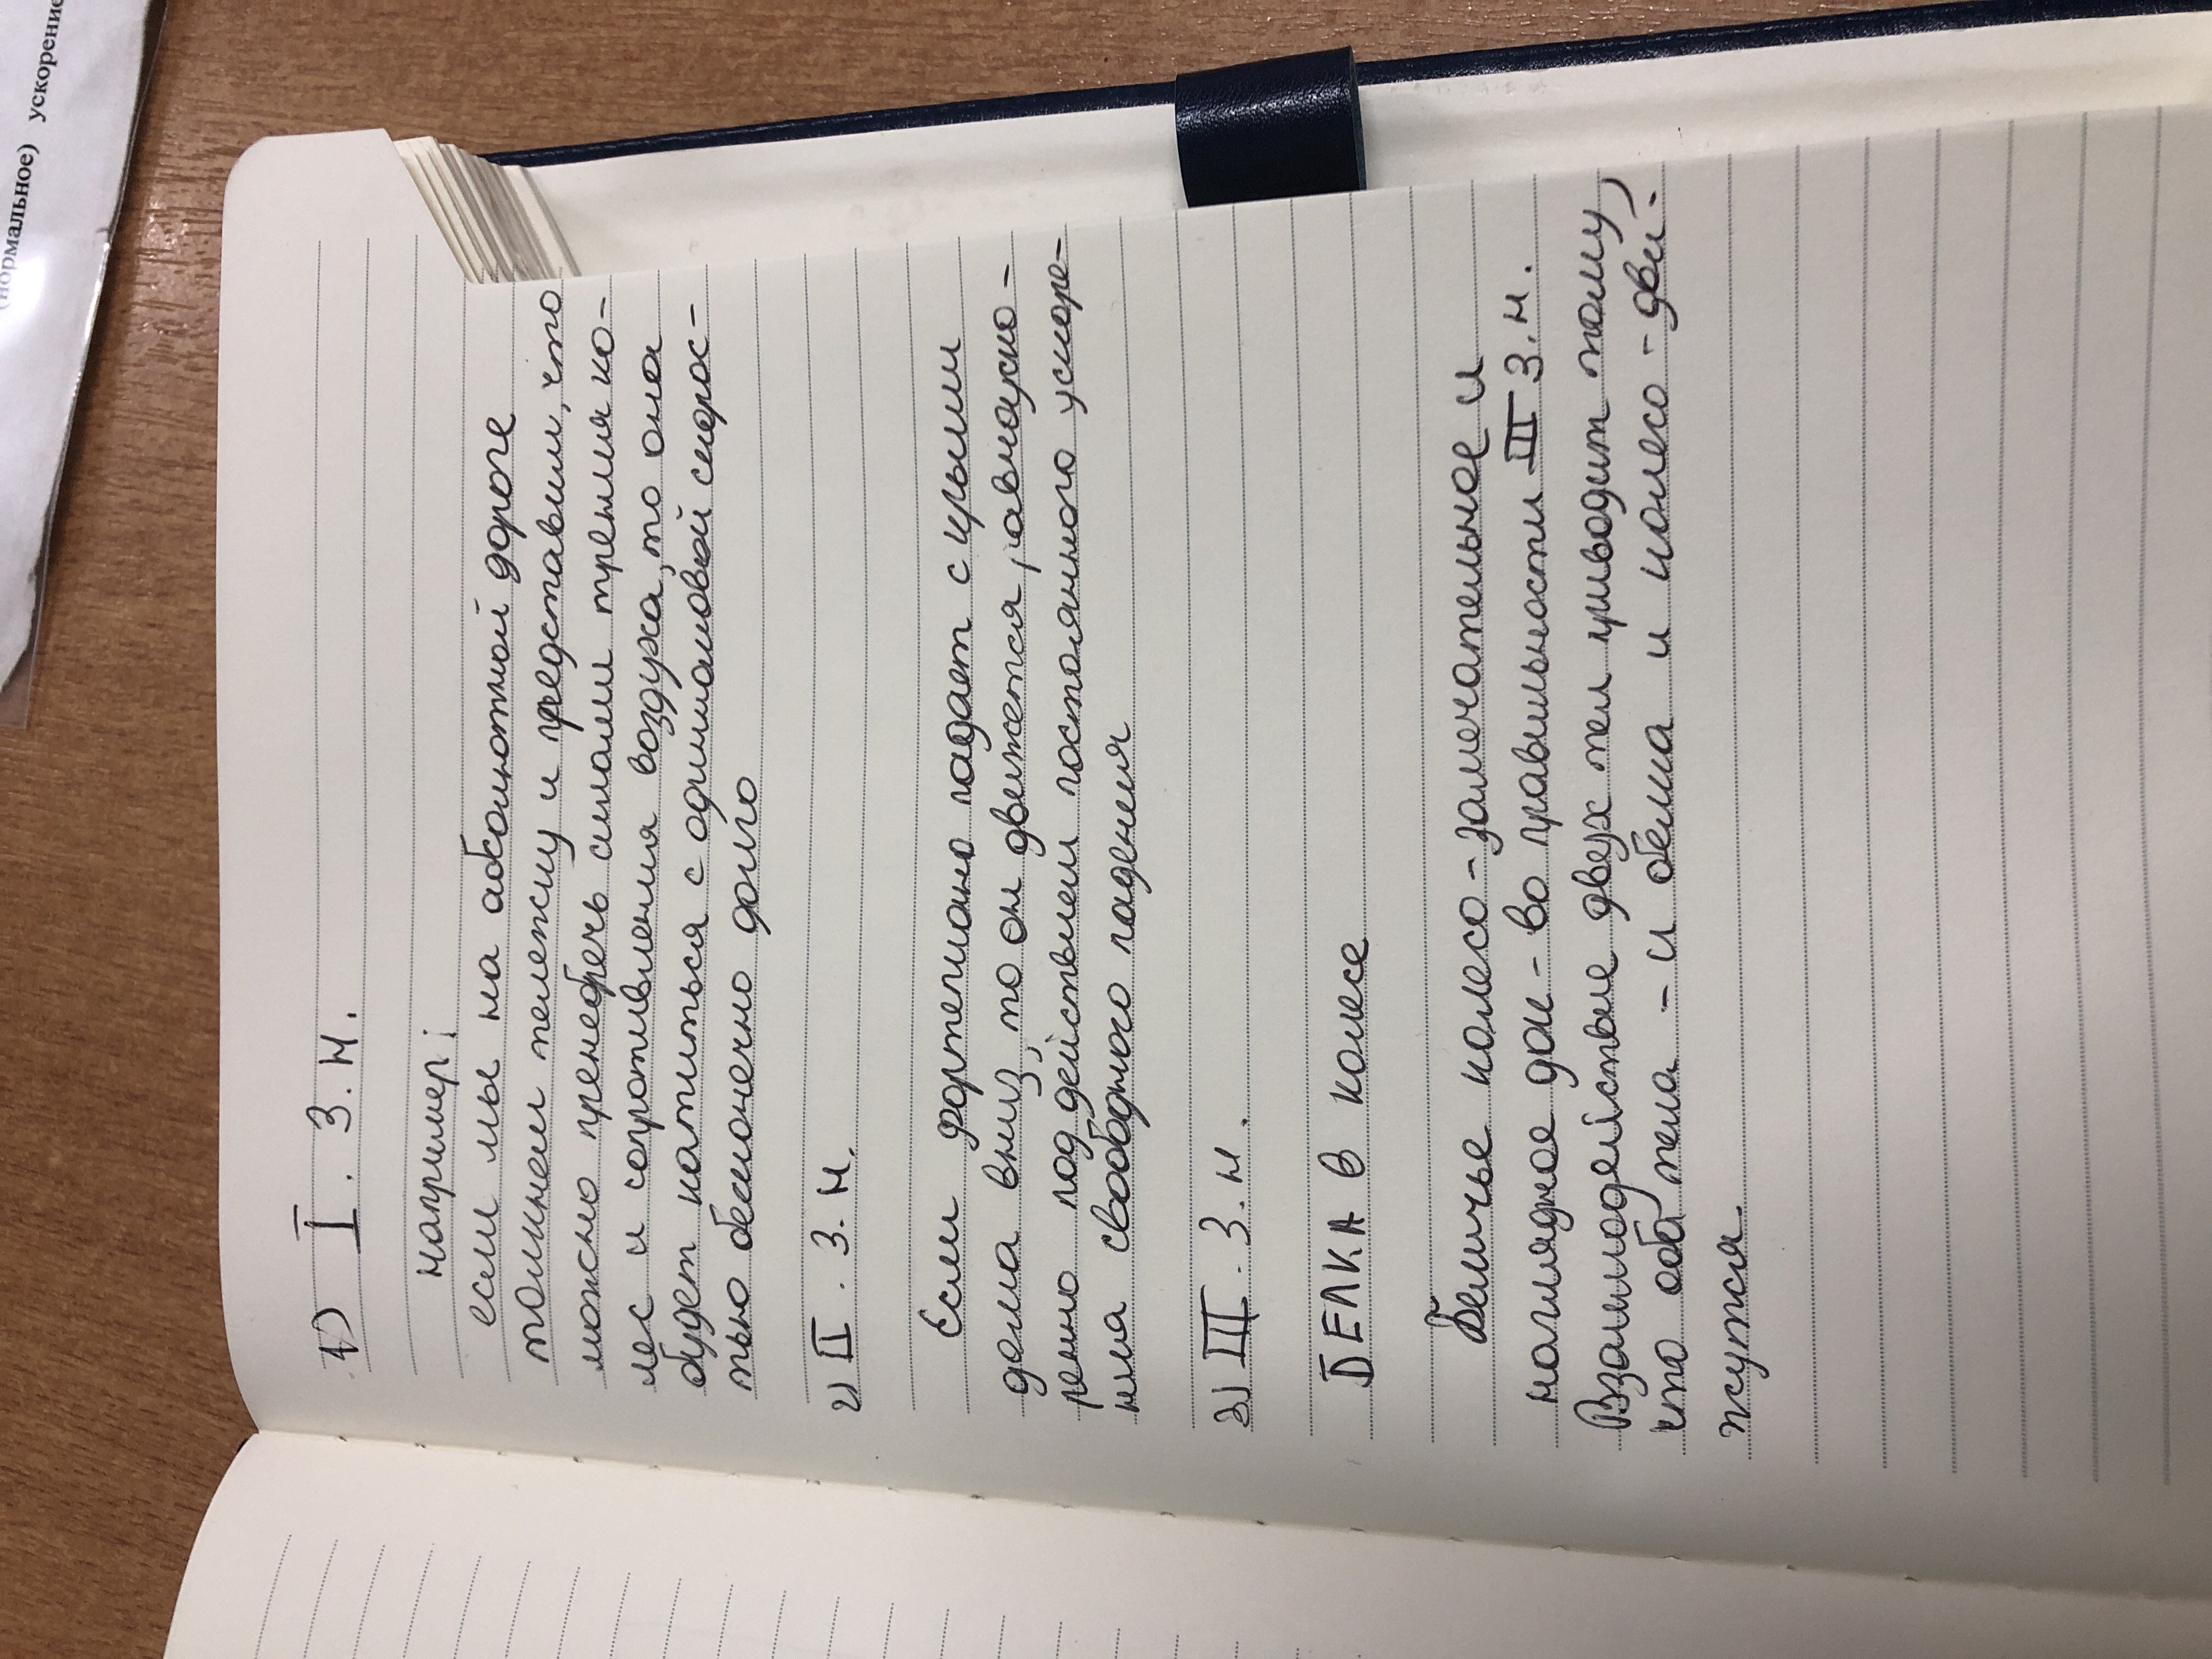 (нормальное) ускорение
1) I. З.Н.
например:
если мы на абсолютной дороге
толкнем тележку и представим, что
можно пренебречь силами трения ко-
лес и сопротивления воздуха, то она
будет катиться с одинаковой скорос-
тью бесконечно долго
2) II. З.Н.
Если фортепиано падает с крыши
дома вниз, то он движется равноуско-
ренно под действием постоянного ускоре-
ния свободного падения
3) III. З.Н.
БЕЛКА В колесе
Беличье колесо - замечательное и
наглядное док-во правильности III З.Н.
Взаимодействие двух тел приводит тому,
что оба тела - и белка и колесо - дви-
жутся.